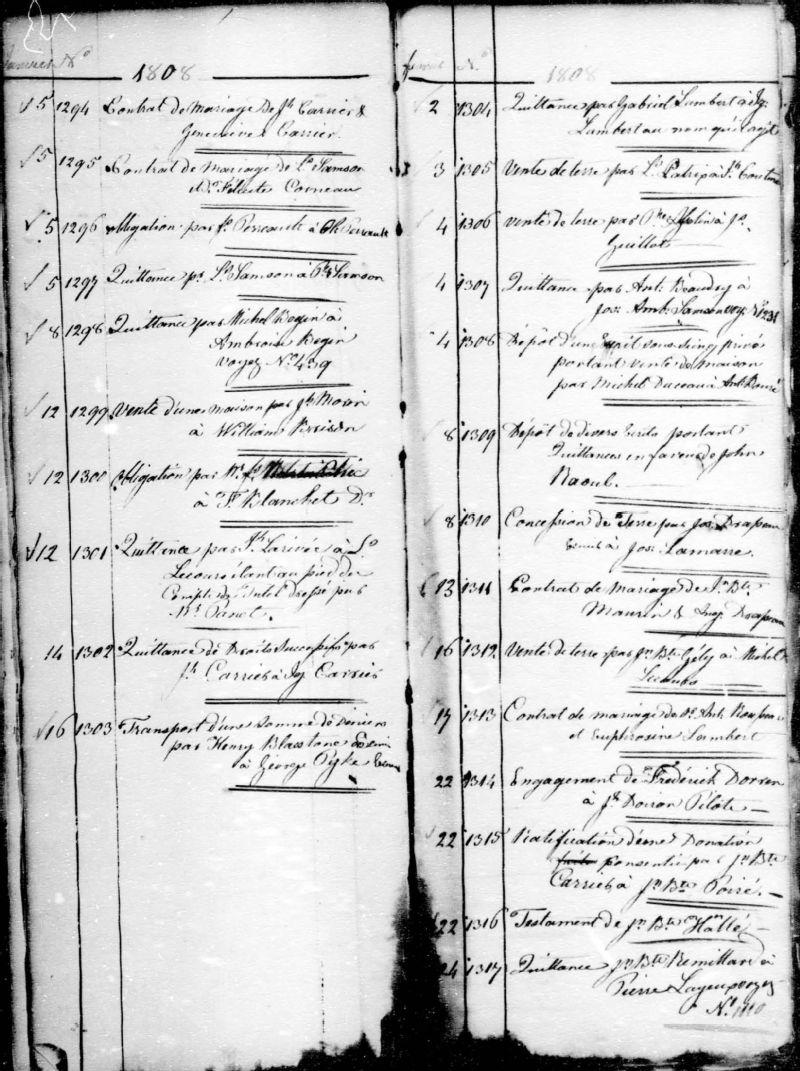 Janvier No
1808
5 1294 Contrat de Mariage de Jh Carrier &
Genevieve Carrier.
5 1295 Contrat de Mariage de Ls Samson
& Felicite Comeau
5 1296 Obligation par Jh Perreault à Ch Perreault
5 1297 Quittance pr Ls Samson à Samson
8 1298 Quittance par Michel Begin à
Ambroise Begin
voyez No 439
12 1299 Vente d'une maison par Jh Morin
à William
12 1300 Obligation par
à F. Blanchet Dr
12 1301 Quittance par Jh Larivée à
Lecours étant au pied du
Compte de dressé par
Mr Panet.
14 1302 Quittance de Droits Successifs par
Jh Carrier à Ig Carrier
16 1303 Transport d'une somme de deniers
par Henry Blasstone
à George Pyke
fevrier No
1808
2 1304 Quittance par Gabriel Lambert à Ig.
Lambert au nom qu'il agit
3 1305 Vente de terre par Ls Patri à Jh Couture
4 1306 Vente de terre par à Js.
Guillot
4 1307 Quittance par Ant: Beaudry à
Jos: Amb: Samson voy: No 1231
4 1308 Dépôt d'un Ecrit sous seing privé
portant vente de maison
par Michel à Ant
8 1309 Dépôt de divers Ecrits portant
Quittances en faveur de John
Raoul.
8 1310 Concession de Terre par Jos: Drapeau
à Jos: Lamarre.
13 1311 Contrat de Mariage de Jn Bte
& Ang. Drapeau
16 1312 Vente de terre par Jn Bte Gély à Michel
Lecours
17 1313 Contrat de mariage de Ant:
et Euphrosine Lambert
22 1314 Engagement de Frédérick Dorren
à Jh Dorion Pilote
22 1315 Ratification d'une Donation
faite consentie par Jn Bte
Carrier à Jn Bte Poiré.
22 1316 Testament de Jn Bte Hallé
24 1317 Quittance Jn Bte Remillard à
Pierre voyez
No 1110